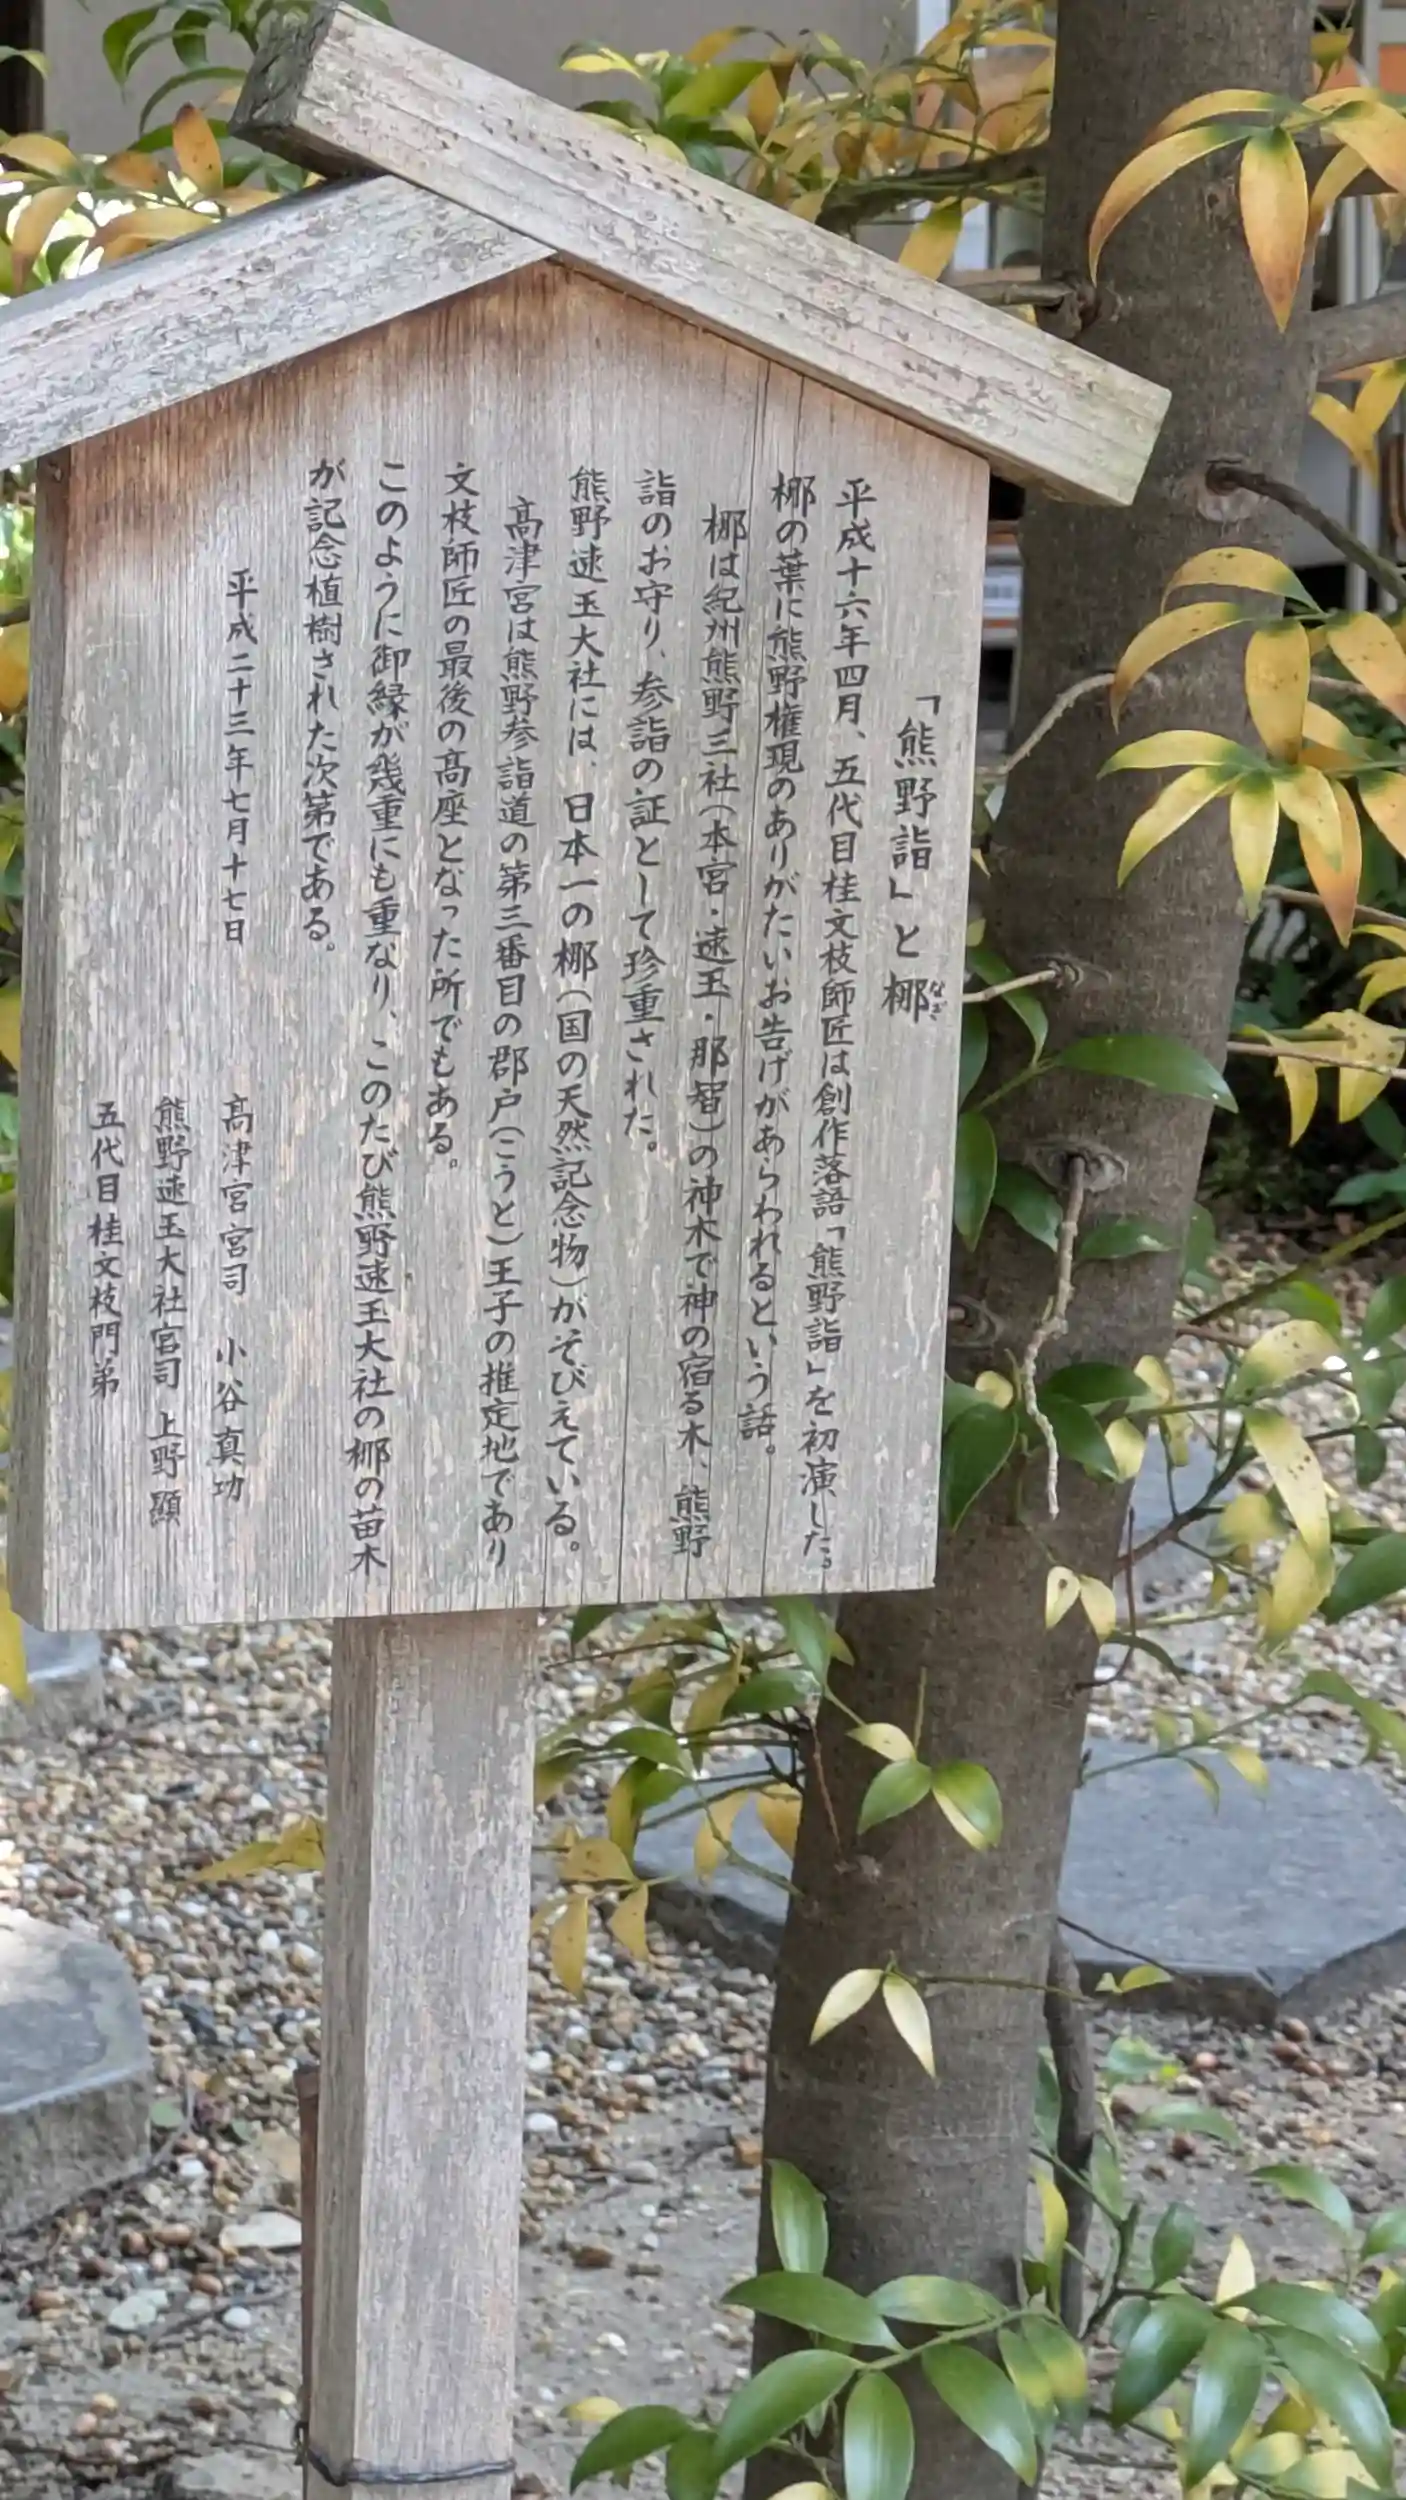 「熊野詣」と梛
なぎ
平成十六年四月、五代目桂文枝師匠は創作落語「熊野詣」を初演した。
梛の葉に熊野権現のありがたいお告げがあらわれるという話。
梛は紀州熊野三社(本宮・速玉・那智)の神木で神の宿る木、熊野
詣のお守り、参詣の証として珍重された。
熊野速玉大社には、日本一の梛(国の天然記念物)がそびえている。
髙津宮は熊野参詣道の第三番目の郡戸(こうと)王子の推定地であり
文枝師匠の最後の髙座となった所でもある。
このように御縁が幾重にも重なり、このたび熊野速玉大社の梛の苗木
が記念植樹された次第である。
平成二十三年七月十七日
髙津宮宮司 小谷真功
熊野速玉大社宮司 上野顯
五代目桂文枝門弟